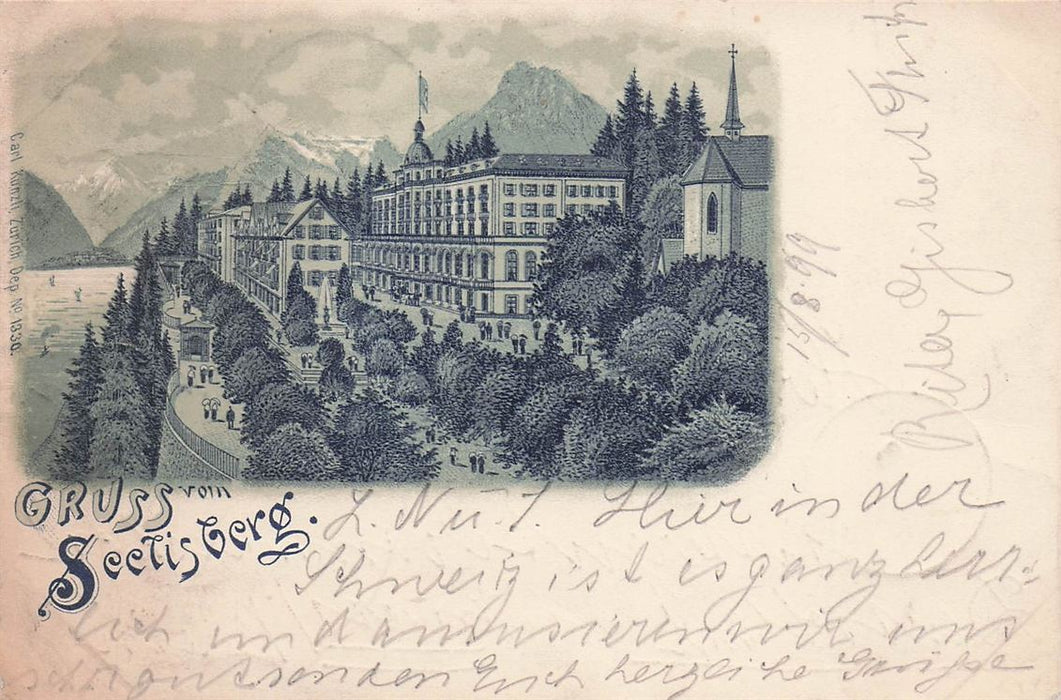 Carl Künzli, Zürich Dep. No 1330.
GRUSS vom
Seelisberg.
L. N u. T. Hier in der
Schweiz ist es ganz herr-
lich und amusieren wir uns
schön u. senden Euch herzliche Grüsse
15/8.99
Rita, Gisbert